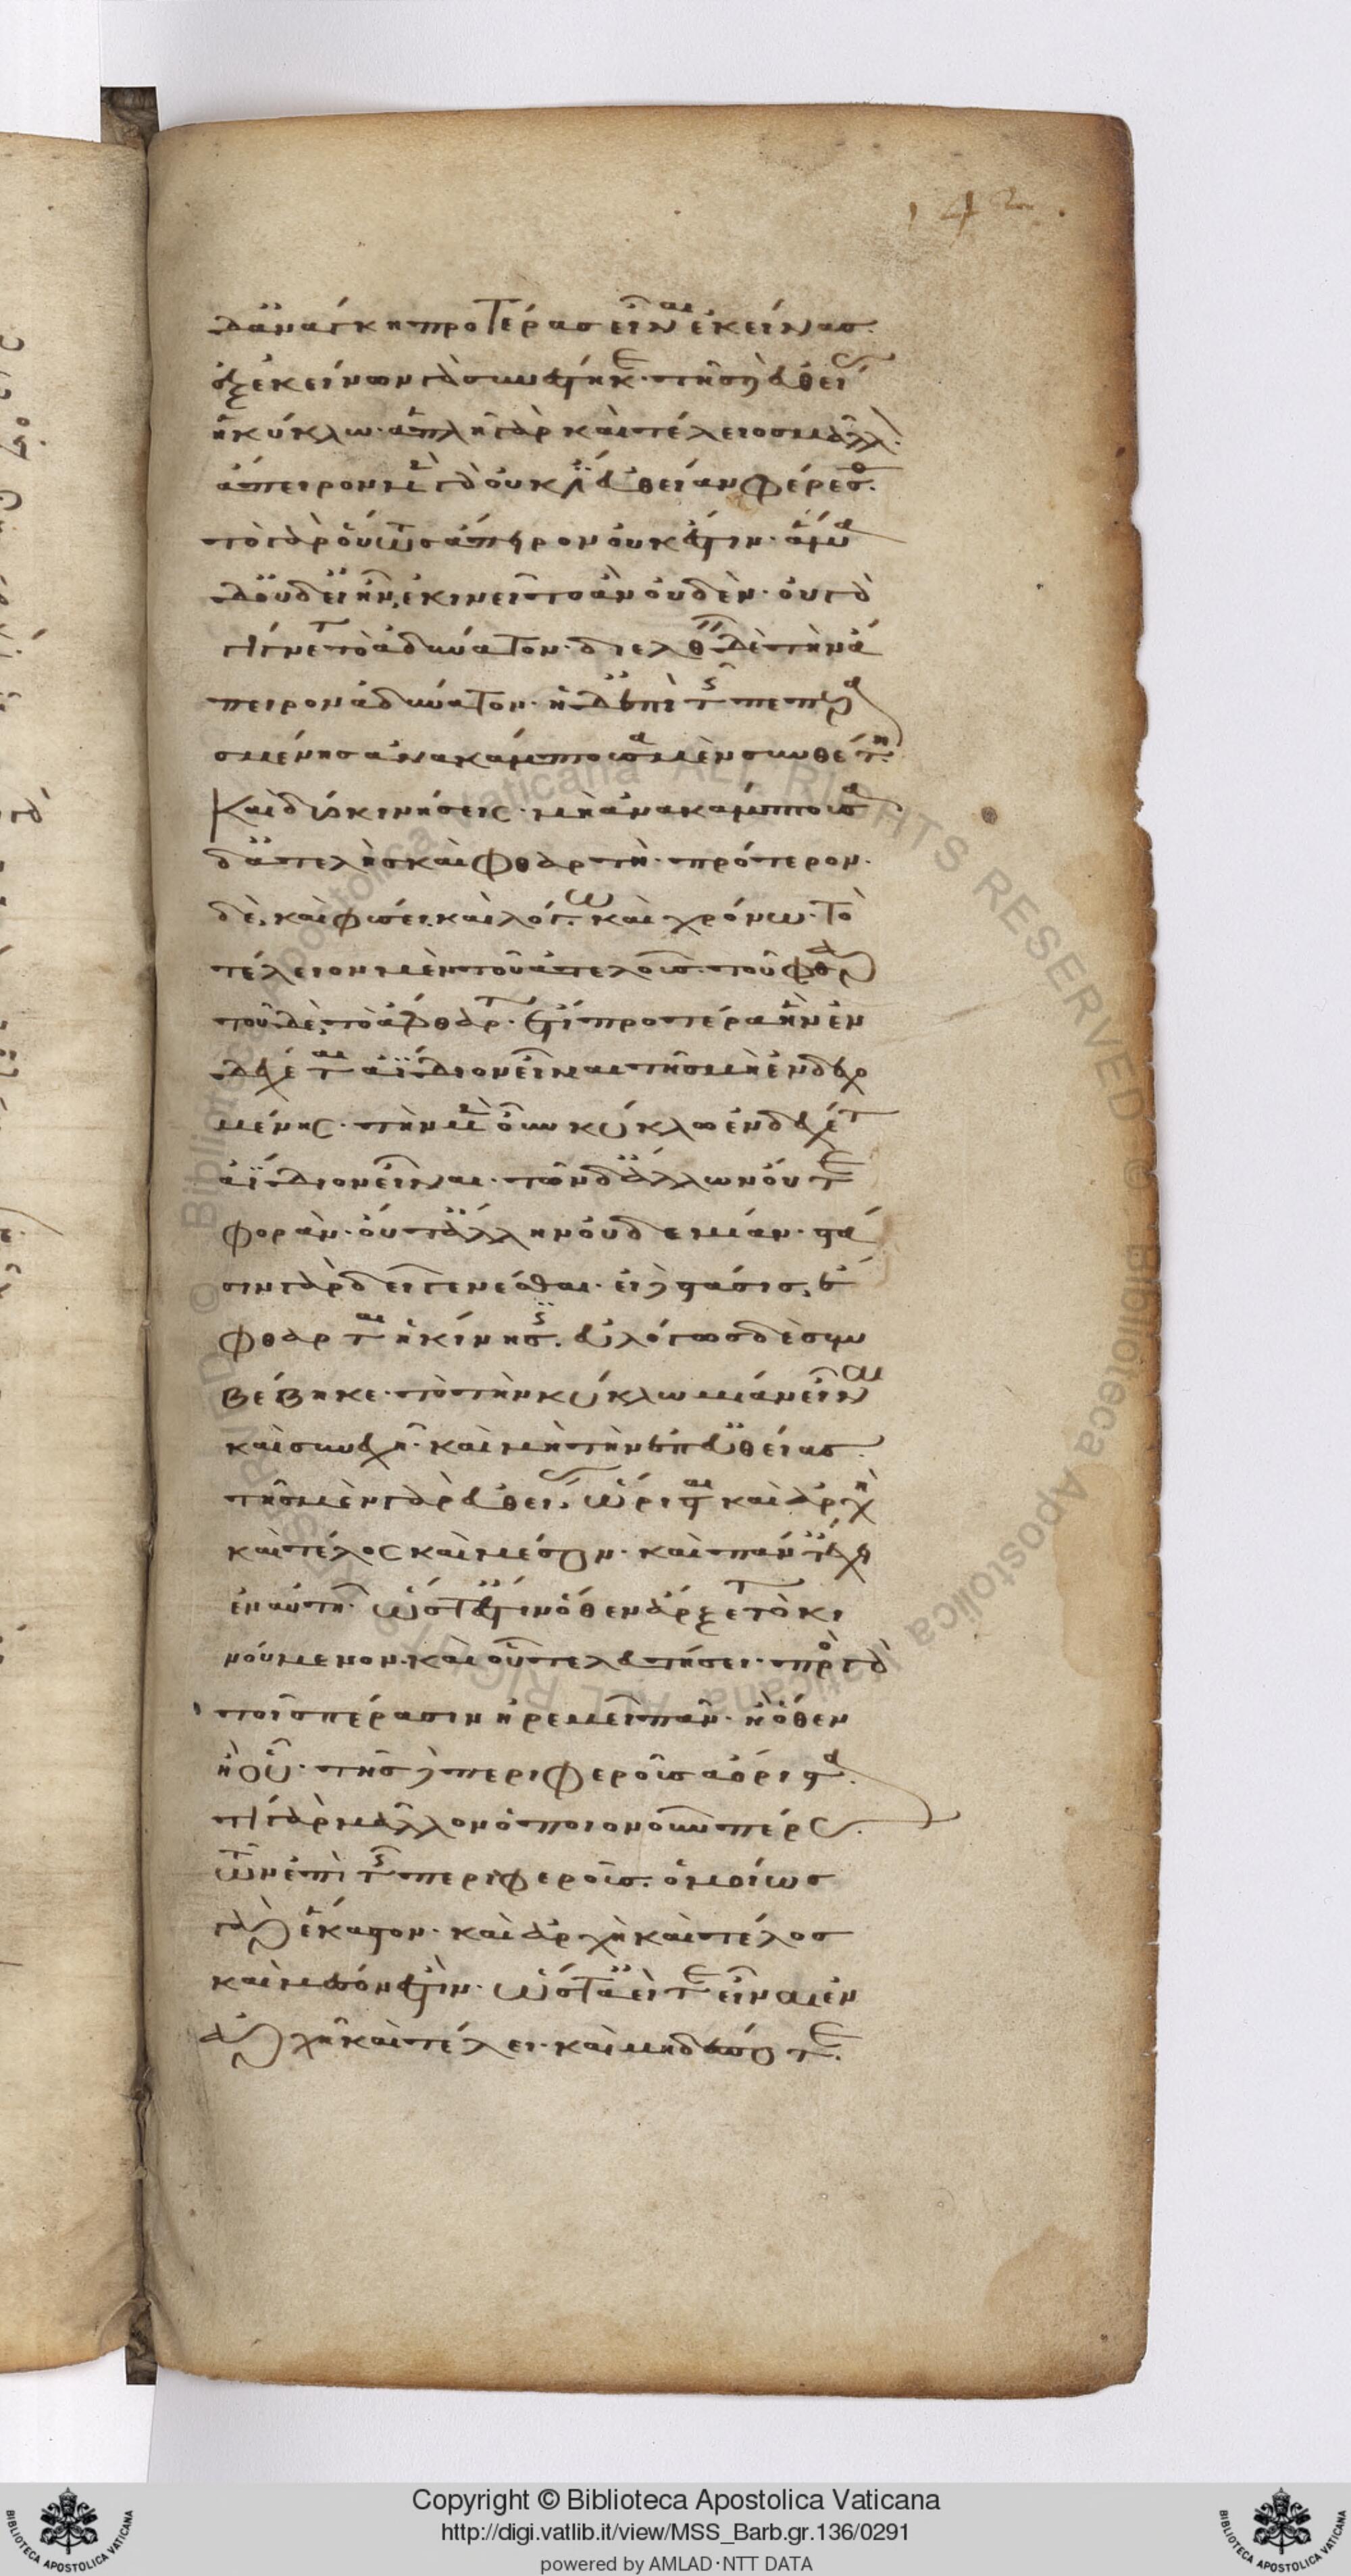 142.
δ' ἀνάγκη προτέρας εἶναι ἐκείνας.
ἐξ ἐκείνων γὰρ συνέστηκε. τῆς δὲ εὐθείας
ἡ κύκλω. ἁπλῆ γὰρ καὶ τέλειος μᾶλλον.
ἄπειρον μὲν γὰρ οὐκ ἔστιν εὐθεῖαν φέρεσθαι.
τὸ γὰρ οὕτως ἄπειρον οὐκ ἔστιν. ἅμα
δ' οὐδ' εἰ ἦν, ἐκινεῖτο ἂν οὐδέν. οὐ γὰρ
γίνεται τὸ ἀδύνατον. διελθεῖν δὲ τὴν ἄ
πειρον ἀδύνατον. ἡ δ' ἐπὶ τῆς πεπερα
σμένης ἀνακάμπτουσα μὲν συνθέτη.
Καὶ δύο κινήσεις. μὴ ἀνακάμπτουσα
δ' ἀτελὴς καὶ φθαρτὴ. πρότερον.
δὲ, καὶ φύσει, καὶ λόγω καὶ χρόνω. τὸ
τέλειον μὲν τοῦ ἀτελοῦς. τοῦ φθαρ
τοῦ δὲ, τὸ ἄφθαρτον. ἔτι προτέρα ἣν ἐν
δέχεται ἀΐδιον εἶναι τῆς μὴ ἐνδεχο
μένης. τὴν μὲν οὖν κύκλω ἐνδέχεται
ἀΐδιον εἶναι. τῶν δ' ἄλλων οὔτε
φορὰν. οὔτ' ἄλλην οὐδεμίαν. στά
σιν γὰρ δεῖ γενέσθαι. εἰ δὲ στάσις, ἔ
φθαρται ἡ κίνησις. εὐλόγως δὲ συμ
βέβηκε. τὸ τὴν κύκλω μίαν εἶναι
καὶ συνεχῆ. καὶ μὴ τὴν ἐπ' εὐθείας.
τῆς μὲν γὰρ εὐθείας. ὥρισται καὶ ἀρχὴ
καὶ τέλος καὶ μέσον. καὶ πάντ' ἔχει
ἐν αὑτῆ. ὥστ' ἔστιν ὅθεν ἄρξεται τὸ κι
νούμενον. καὶ οὗ τελευτήσει. πρὸς γὰρ
τοῖς πέρασιν ἠρεμεῖ πᾶν. ἢ ὅθεν
ἢ οὗ. τῆς δὲ περιφεροῦς ἀόριστα.
τί γὰρ μᾶλλον ὁποιονοῦν πέρας.
τῶν ἐπὶ τῆς περιφεροῦς. ὁμοίως
γὰρ ἕκαστον. καὶ ἀρχὴ καὶ τέλος
καὶ μέσον ἐστὶν. ὥστ' ἀεί τε εἶναι ἐν
ἀρχῆ καὶ τέλει. καὶ μηδέποτε.
Copyright © Biblioteca Apostolica Vaticana
http://digi.vatlib.it/view/MSS_Barb.gr.136/0291
powered by AMLAD·NTT DATA